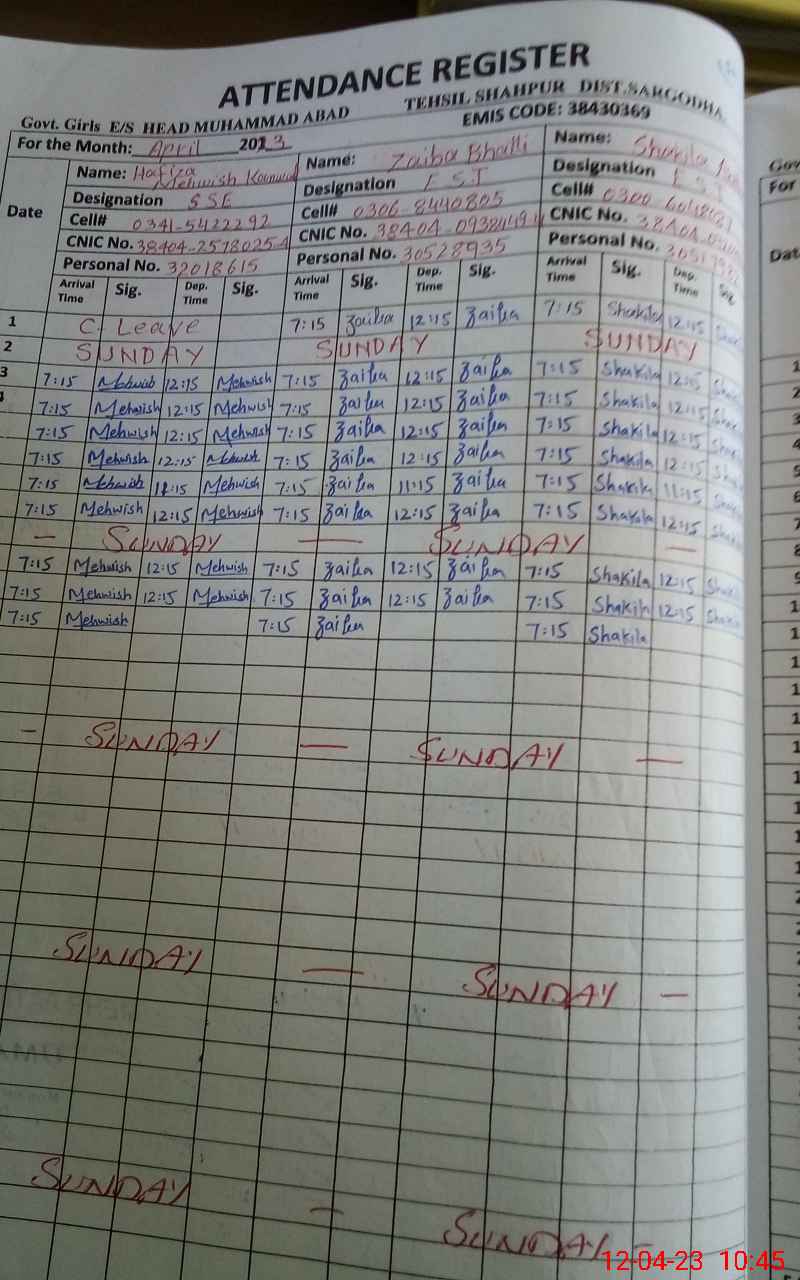 ATTENDANCE REGISTER
Govt. Girls E/S HEAD MUHAMMAD ABAD TEHSIL SHAHPUR DIST.SARGODHA
EMIS CODE: 38430369
For the Month: April 2023
Name: Hafiza Mehwish Name: Zaiba Bhatti Name: Shakila
Designation SSE Designation EST Designation EST
Cell# 0341-5422292 Cell# 0306-8440805 Cell# 0300
CNIC No. 38404-2578025-4 CNIC No. 38404-0938449 CNIC No. 38404
Personal No. 32018615 Personal No. 30528935 Personal No.
Date Arrival Time Sig. Dep. Time Sig. Arrival Time Sig. Dep. Time Sig. Arrival Time Sig. Dep. Time Sig
1 C. Leave 7:15 Zaiba 12:15 Zaiba 7:15 Shakila 12:15
2 SUNDAY SUNDAY SUNDAY
3 7:15 Mehwish 12:15 Mehwish 7:15 Zaiba 12:15 Zaiba 7:15 Shakila 12:15
7:15 Mehwish 12:15 Mehwish 7:15 Zaiba 12:15 Zaiba 7:15 Shakila 12:15
7:15 Mehwish 12:15 Mehwish 7:15 Zaiba 12:15 Zaiba 7:15 Shakila 12:15
7:15 Mehwish 12:15 Mehwish 7:15 Zaiba 12:15 Zaiba 7:15 Shakila 12:15
7:15 Mehwish 11:15 Mehwish 7:15 Zaiba 11:15 Zaiba 7:15 Shakila 11:15
7:15 Mehwish 12:15 Mehwish 7:15 Zaiba 12:15 Zaiba 7:15 Shakila 12:15
— SUNDAY — SUNDAY —
7:15 Mehwish 12:15 Mehwish 7:15 Zaiba 12:15 Zaiba 7:15 Shakila 12:15
7:15 Mehwish 12:15 Mehwish 7:15 Zaiba 12:15 Zaiba 7:15 Shakila 12:15
7:15 Mehwish 7:15 Zaiba 7:15 Shakila
— SUNDAY — SUNDAY —
SUNDAY — SUNDAY —
SUNDAY — SUNDAY —
12-04-23 10:45